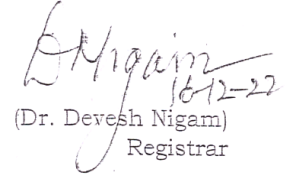 DNigam
16-12-22
(Dr. Devesh Nigam)
Registrar